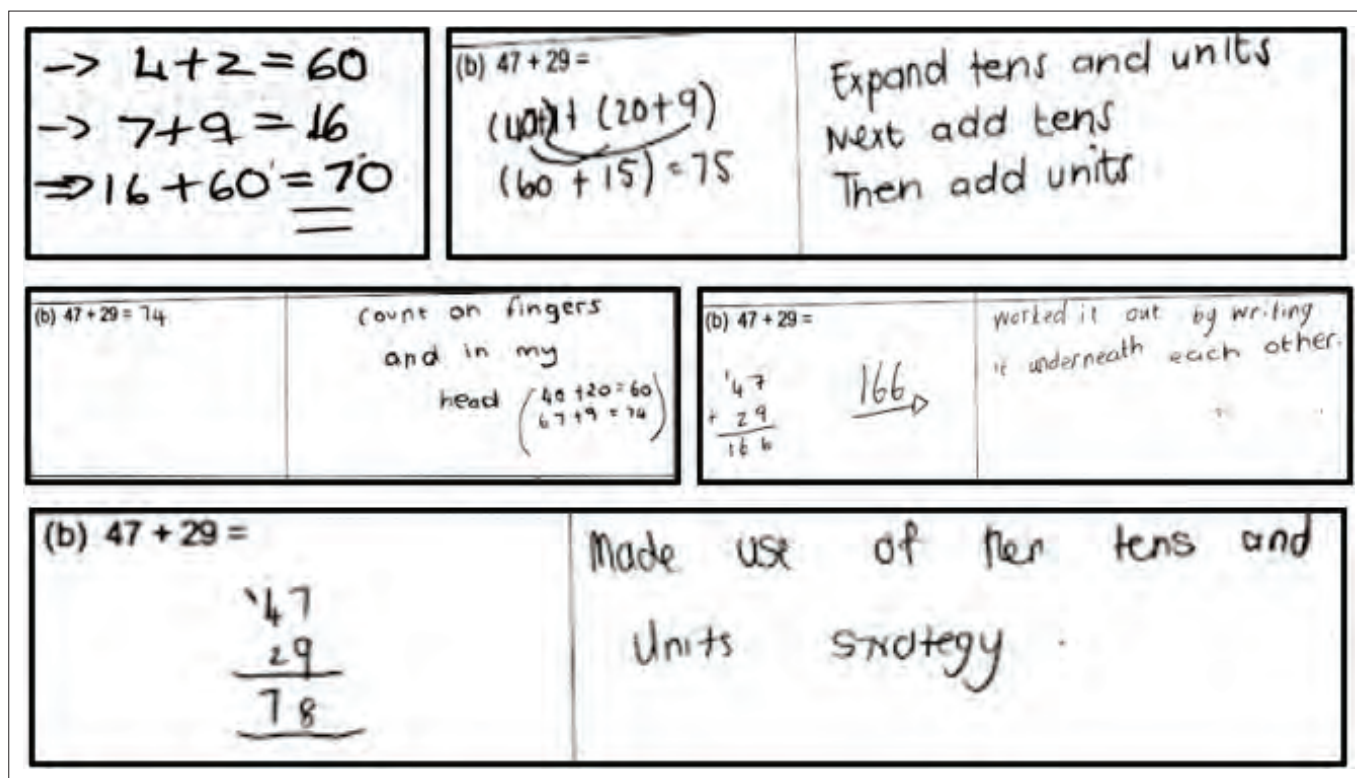 -> 4+2=60
-> 7+9=16
=>16+60=70
(b) 47 + 29 =
(40+ + (20+9)
(60 + 15) = 75
Expand tens and units
Next add tens
Then add units
(b) 47 + 29 = 74
count on fingers
and in my
head (40 +20=60
67+9 = 74)
(b) 47 + 29 =
'47
+ 29
166
166
worked it out by writing
it underneath each other.
(b) 47 + 29 =
'47
29
78
Made use of tens and
Units